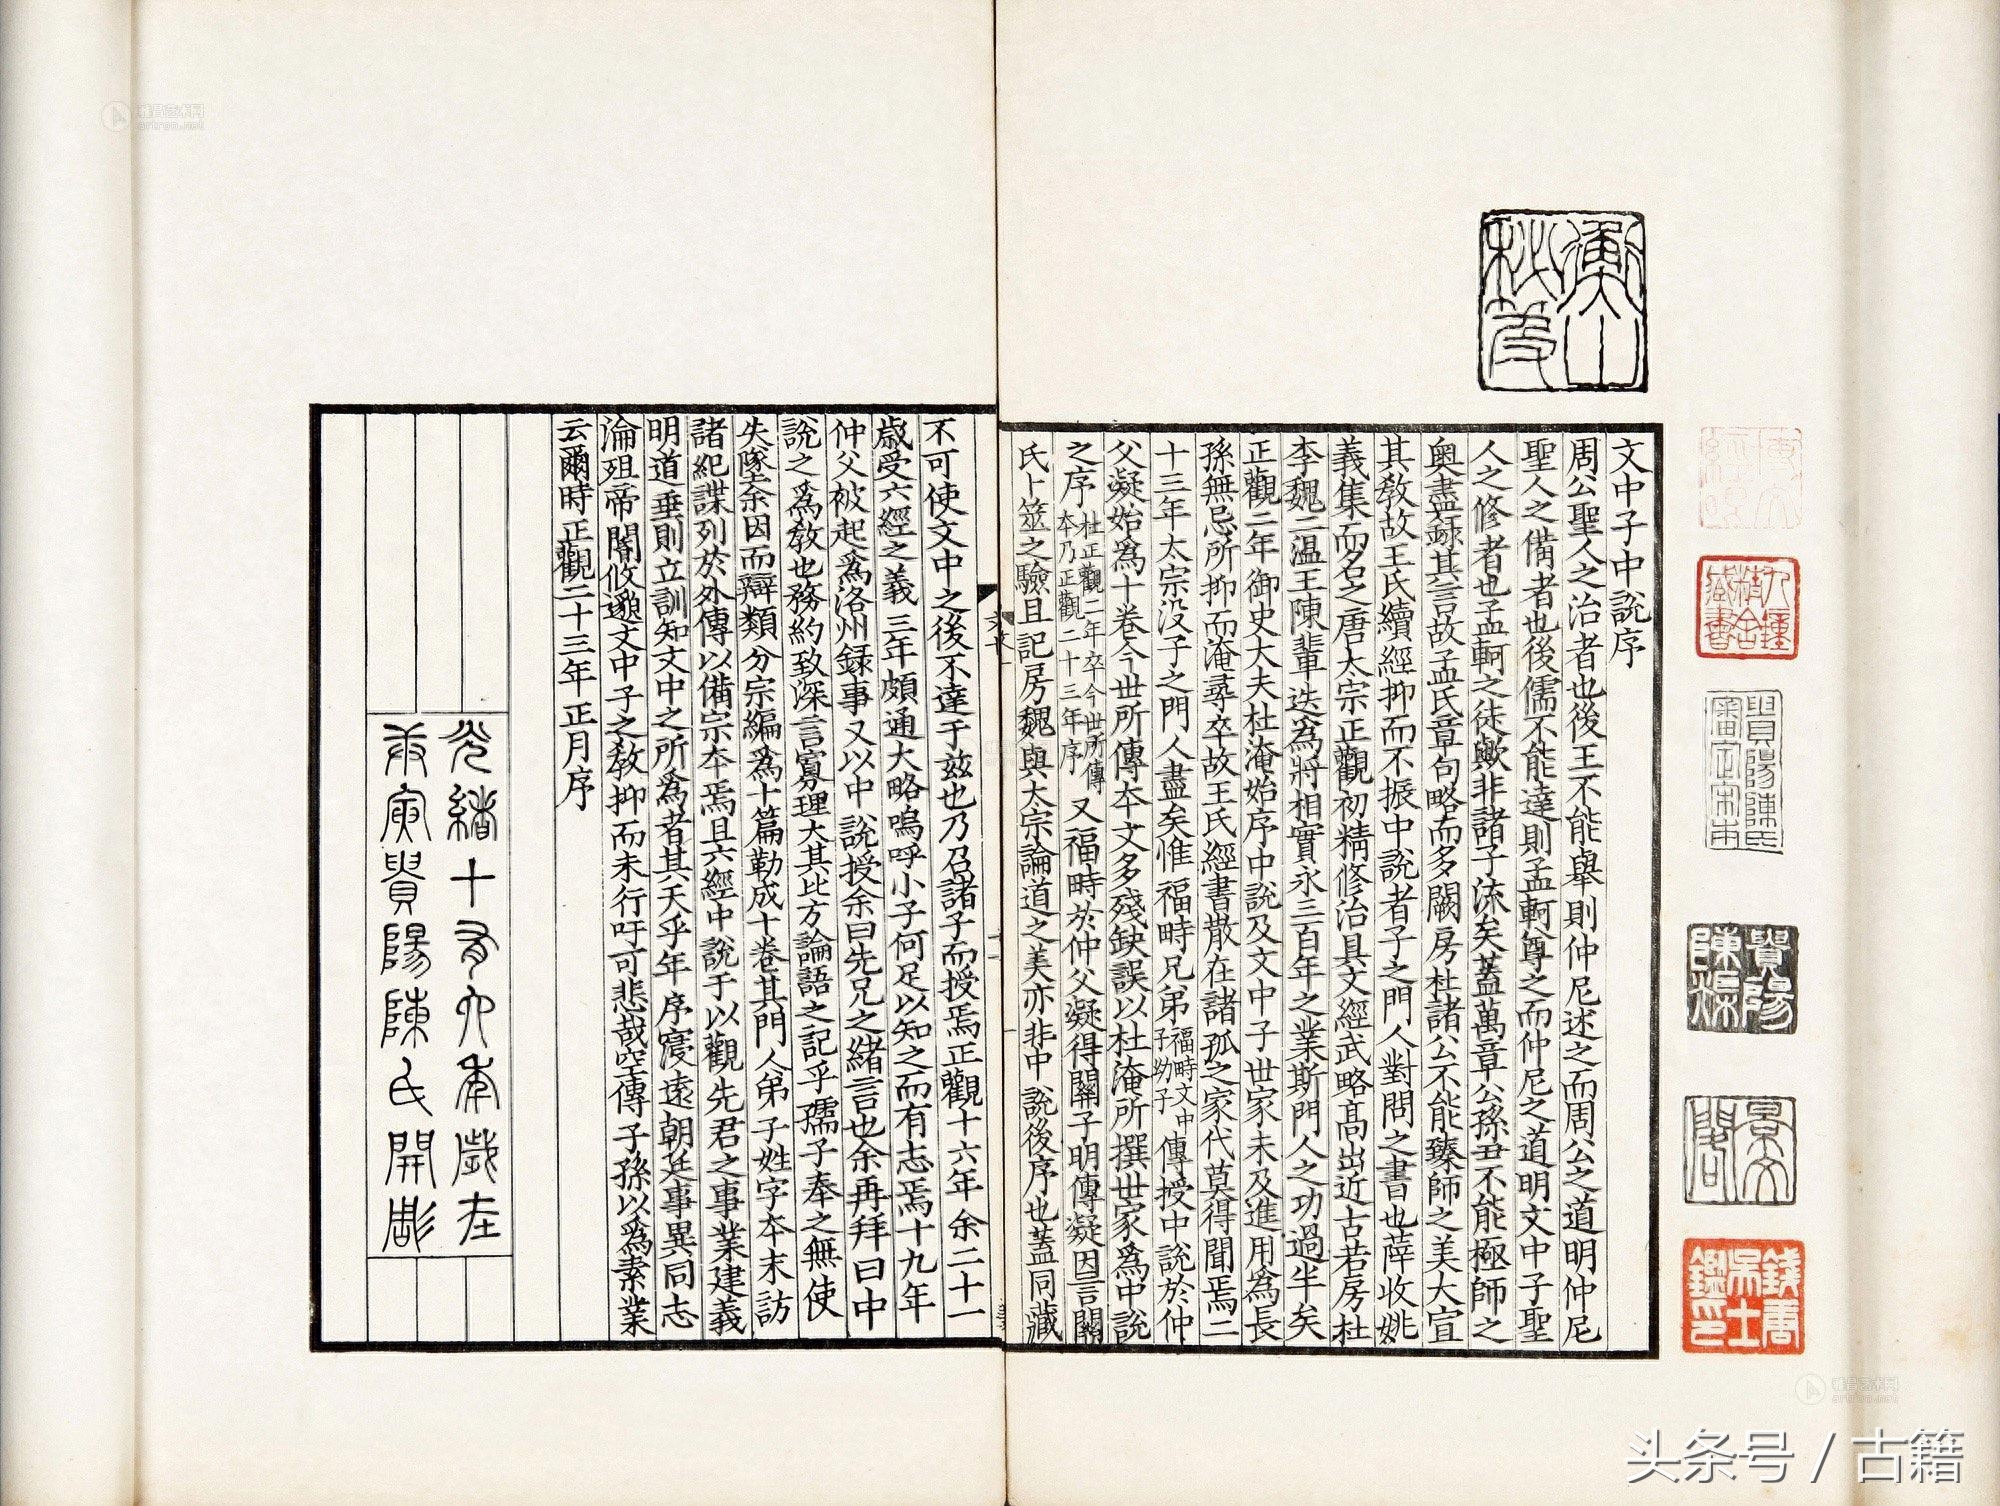 文中子中說序
周公聖人之治者也後王不能舉則仲尼述之而周公之道明仲尼
聖人之備者也後儒不能達則孟軻尊之而仲尼之道明文中子聖
人之修者也孟軻之徒歟非諸子流矣蓋萬章公孫丑不能極師之
奧盡錄其言故孟氏章句略而多闕房杜諸公不能臻師之美大宣
其敎故王氏續經抑而不振中說者子之門人對問之書也薛收姚
義集而名之唐太宗正觀初精修治具文經武略高出近古若房杜
李魏二温王陳輩迭爲將相實永三百年之業斯門人之功過半矣
正觀二年御史大夫杜淹始序中說及文中子世家未及進用爲長
孫無忌所抑而淹尋卒故王氏經書散在諸孤之家代莫得聞焉二
十三年太宗没子之門人盡矣惟福畤兄弟福畤文中子幼子傳授中說於仲
父凝始爲十卷今世所傳夲文多殘缺誤以杜淹所撰世家爲中說
之序杜正觀二年卒今世所傳夲乃正觀二十三年序又福畤於仲父凝得關子明傳凝因言關
氏卜筮之驗且記房魏與太宗論道之美亦非中說後序也蓋同藏
不可使文中之後不達于兹也乃召諸子而授焉正觀十六年余二十一
歲受六經之義三年頗通大略嗚呼小子何足以知之而有志焉十九年
仲父被起爲洛州録事又以中說授余曰先兄之緒言也余再拜曰中
說之爲敎也務約致深言寡理大其比方論語之記乎孺子奉之無使
失墜余因而辯類分宗編爲十篇勒成十卷其門人弟子姓字夲末訪
諸紀諜列於外傳以備宗夲焉且六經中說于以觀先君之事業建義
明道垂則立訓知文中之所爲者其天乎年序寖遠朝廷事異同志
淪殂帝閽攸邈文中子之敎抑而未行吁可悲哉空傳子孫以爲素業
云爾時正觀二十三年正月序
光緒十有六年歲在
庚寅貴陽陳氏開彫
衡山
秋
九鍾精舍藏書
貴陽陳氏審定宋本
貴陽陳榘
景文閣
錢唐吳士鑑印
雅昌艺术网
artron.net
雅昌艺术网
artron.net
头条号 / 古籍